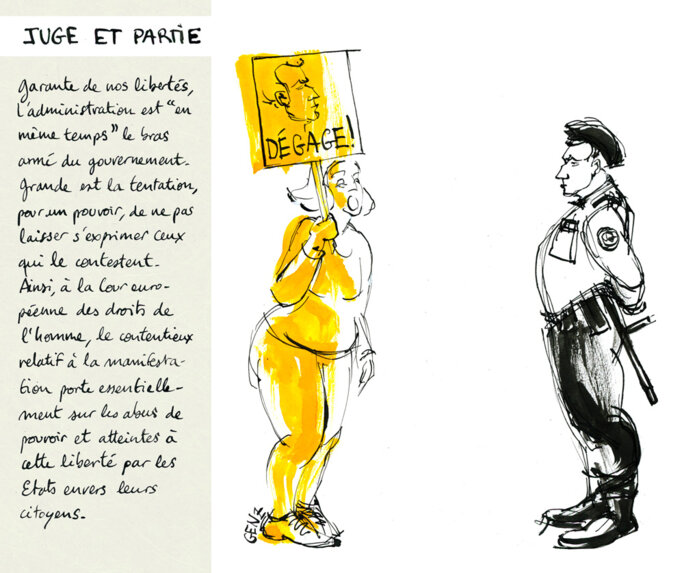 JUGE ET PARTIE
garante de nos libertés,
L'administration est "en
même temps" le bras
armé du gouvernement.
Grande est la tentation,
pour un pouvoir, de ne pas
laisser s'exprimer ceux
qui le contestent.
Ainsi, à la Cour euro-
péenne des droits de
l'homme, le contentieux
relatif à la manifesta-
tion porte essentielle-
ment sur les abus de
pouvoir et atteintes à
cette liberté par les
Etats envers leurs
citoyens.
DÉGAGE!